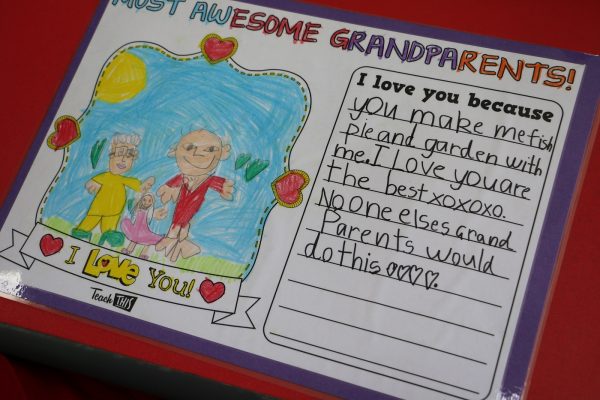 MOST AWESOME GRANDPARENTS!
I love you because
you make me fish
pie and garden with
me. I love you are
the best xoxoxo.
No one elses Grand
Parents would
do this ♡♡♡♡.
I Love You!
Teach THIS